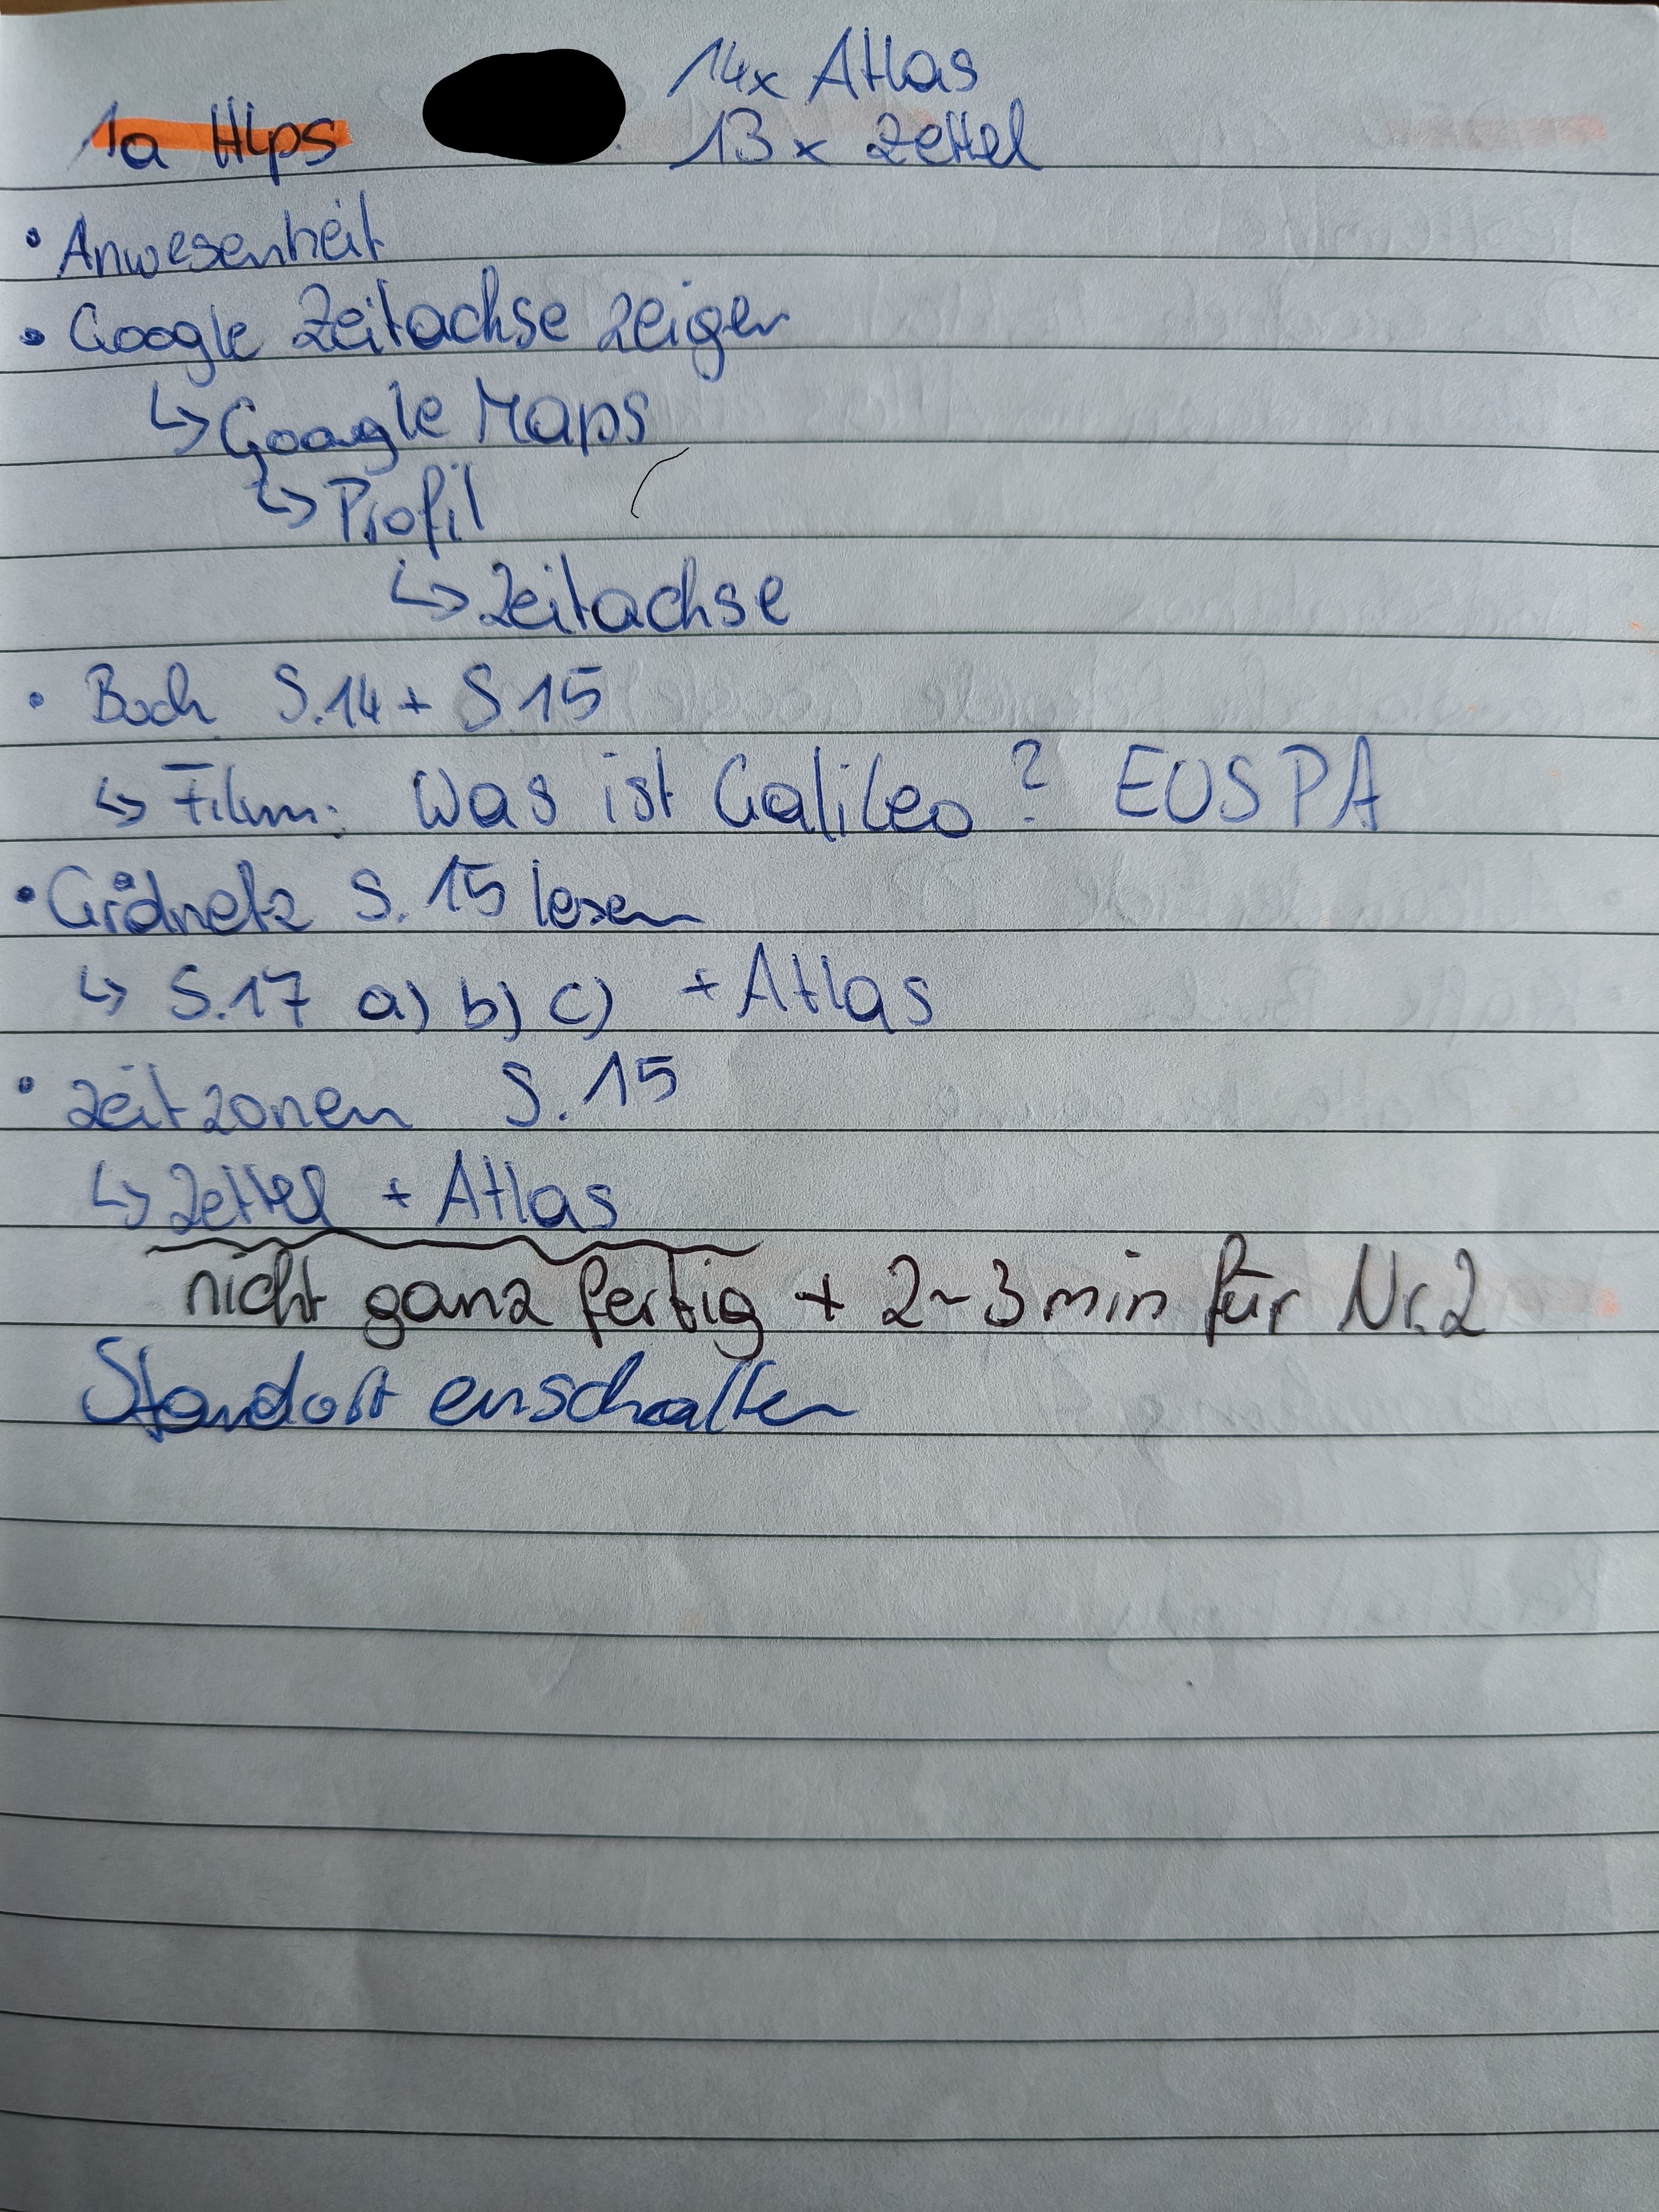 14x Atlas
1a Hlps 13x Zettel
• Anwesenheit
• Google Zeitachse zeigen
↳ Google Maps
↳ Profil
↳ Zeitachse
• Buch S.14 + S.15
↳ Film: Was ist Galileo? EUSPA
• Gradnetz S. 15 lesen
↳ S.17 a) b) c) + Atlas
• Zeitzonen S. 15
↳ Zettel + Atlas
nicht ganz fertig + 2-3 min für Nr. 2
Standort einschalten